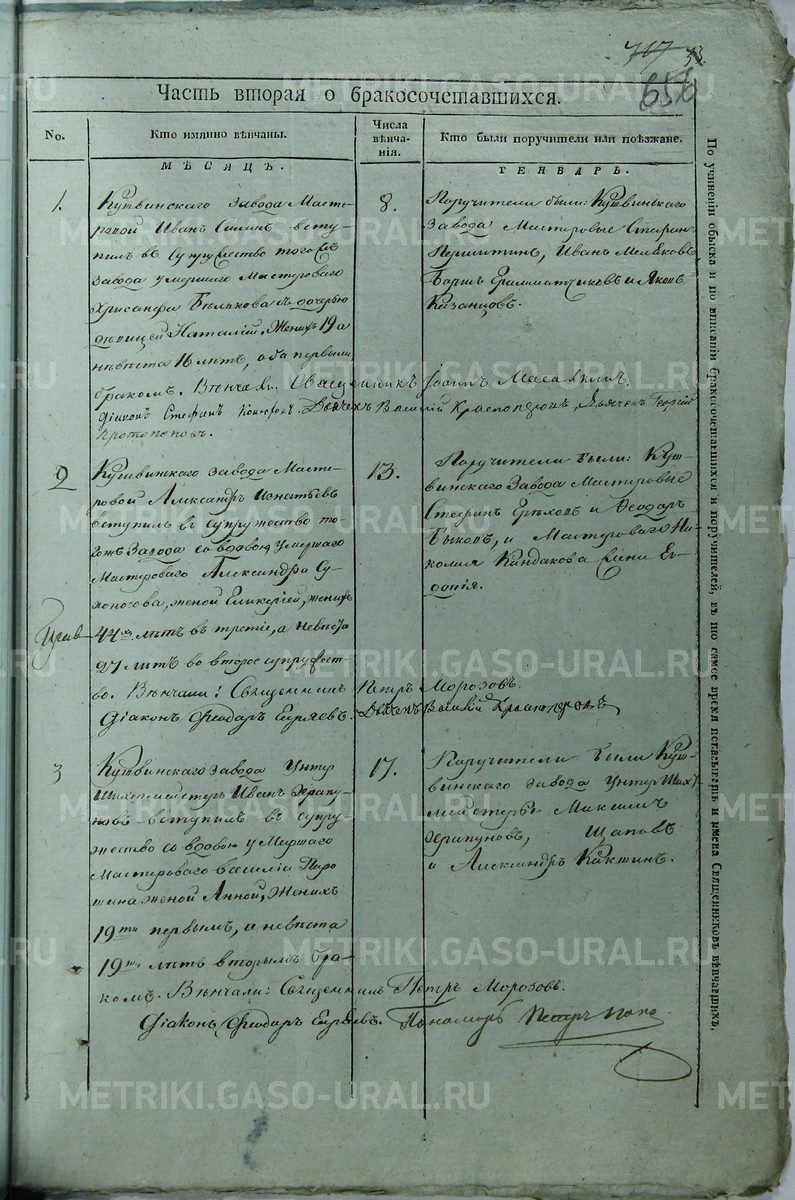 717
656
Часть вторая о бракосочетавшихся.
No.
Кто имянно вѣнчаны.
Числа вѣнча-
нія.
Кто были поручители или поѣзжане.
МѢСЯЦЪ.
ГЕНВАРЬ.
1.
Кушвинскаго завода Масте-
ровой Иванъ всту-
пилъ въ супружество тогожъ
завода умершаго Мастероваго
Хрисанфа Бѣлькова съ дочерью
дѣвицей Наталіей, женихъ 19 а
невѣста 16 лѣтъ, оба первымъ
бракомъ. Вѣнчали: Священникъ Іоаннъ
Діаконъ Стефанъ Дьячекъ Василій Красноперовъ, Дьячекъ Георгій
Протопоповъ.
8.
Поручители были: Кушвинскаго
завода Мастеровые Стефанъ
Иванъ
и Яковъ
Казанцовъ.
2
Кушвинскаго завода Масте-
ровой Александръ Игнатьевъ
вступилъ въ супружество то-
гожъ завода со вдовою умершаго
Мастероваго Александра Су-
хоносова, женой Гликеріей, женихъ
44хъ лѣтъ въ третіе, а невѣста
27 лѣтъ во второе супружест-
во. Вѣнчали: Священникъ Петръ Морозовъ.
Діаконъ Феодоръ Дьячекъ Василій Красноперовъ
13.
Поручители были: Куш-
винскаго завода Мастеровые
Стефанъ и Феодоръ
Быковъ, и Мастероваго Ни-
колая Кандакова жена Ев-
докія.
3
Кушвинскаго завода Унтер
Шихтмейстеръ Иванъ Храпу-
новъ вступилъ въ супру-
жество со вдовою умершаго
Мастероваго Василія Паро-
тина женой Анной, женихъ
19ти первымъ, а невѣста
19ти лѣтъ вторымъ бра-
комъ. Вѣнчали: Священникъ Петръ Морозовъ.
Діаконъ Феодоръ Пономарь Петръ Попо
17.
Поручители были Куш-
винскаго завода Унтер Шихт-
мейстеры Максимъ
Храпуновъ, Щаповъ
и Александръ Какшинъ.
По учиненіи обыска и по вписаніи бракосочетавшихся и поручителей, въ то самое время подписывать и имена Священниковъ вѣнчавшихъ.
METRIKI.GASO-URAL.RU